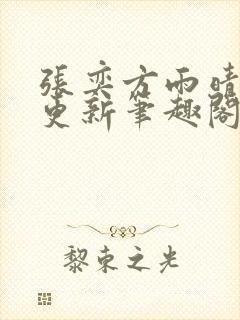 張奕方雨晴
更新筆趣閣
黎束之光